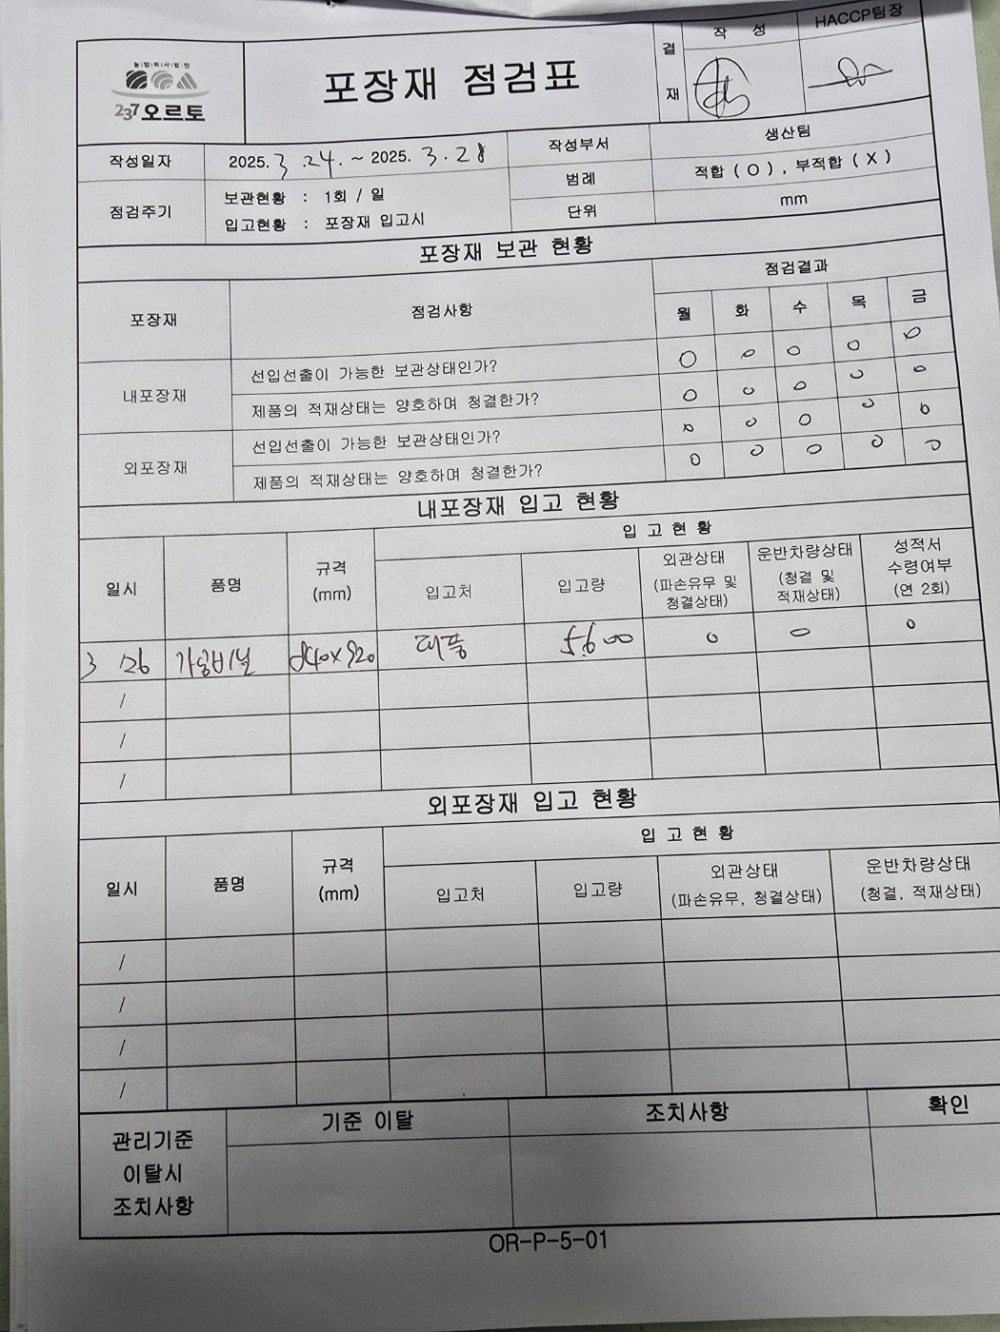 농업회사법인
237오르토
포장재 점검표
결재
작 성
HACCP팀장
작성일자
2025. 3. 24. ~ 2025. 3. 28
작성부서
생산팀
점검주기
보관현황 : 1회 / 일
입고현황 : 포장재 입고시
범례
적합 ( O ) , 부적합 ( X )
단위
mm
포장재 보관 현황
포장재
점검사항
점검결과
월 화 수 목 금
내포장재
선입선출이 가능한 보관상태인가? O O O O O
제품의 적재상태는 양호하며 청결한가? O O O O O
외포장재
선입선출이 가능한 보관상태인가? O O O O O
제품의 적재상태는 양호하며 청결한가? O O O O O
내포장재 입고 현황
일시
품명
규격
(mm)
입고현황
입고처
입고량
외관상태
(파손유무 및
청결상태)
운반차량상태
(청결 및
적재상태)
성적서
수령여부
(연 2회)
3 /26 840x920 대풍 5600 O O O
/
/
/
외포장재 입고 현황
일시
품명
규격
(mm)
입고현황
입고처
입고량
외관상태
(파손유무, 청결상태)
운반차량상태
(청결, 적재상태)
/
/
/
/
관리기준
이탈시
조치사항
기준 이탈
조치사항
확인
OR-P-5-01